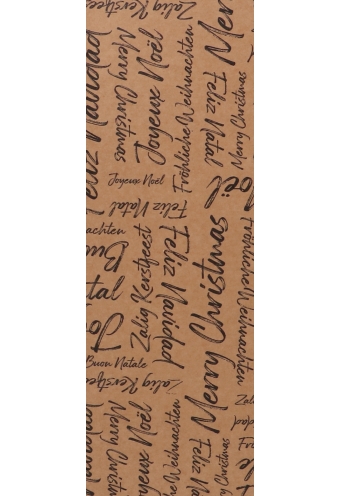 Feliz Navidad
Merry Christmas
Joyeux Noël
Zalig Kerstfeest
Fröhliche Weihnachten
Feliz Natal
Merry Christmas
Joyeux Noël
Feliz Natal
Zalig Kerstfeest
Feliz Navidad
Merry Christmas
Fröhliche Weihnachten
Buon Natale
Zalig Kerstfeest
Merry Christmas
Joyeux Noël
Fröhliche Weihnachten
Feliz Natal
Merry Christmas